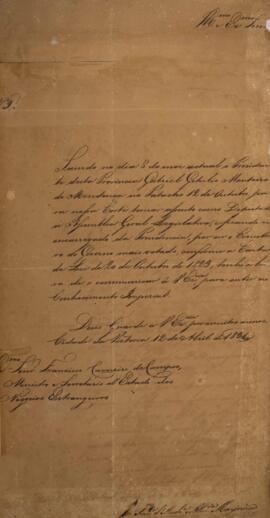 Illmo Exmo Senr
Sahindo no dia 8 do mez actual o Presiden-
te desta Provincia Gabriel Getulio Monteiro
de Mendonça no Patacho 12 de Outubro, para
na Corte tomar assento como Deputado
a Assembléa Geral Legislativa, ficando
encarregado da Presidencia, por ser o Conselhei-
ro do Governo mais votado, conforme a Carta
de Lei de 20 de Outubro de 1823,
de o communicar á V Exa para
Conhecimento Imperial.
Deos Guarde a V Exa por muitos annos
Cidade da Victoria 12 de Abril de
Senr Francisco Carneiro de Campos,
Ministro e Secretario d'Estado dos
Negocios Estrangeiros